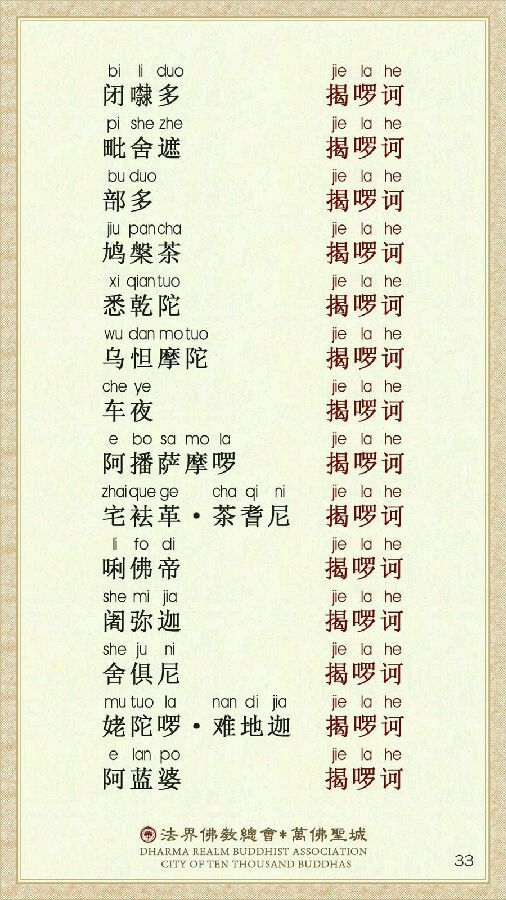 bi li duo jie la he
闭㘑多 揭啰诃
pi she zhe jie la he
毗舍遮 揭啰诃
bu duo jie la he
部多 揭啰诃
jiu pan cha jie la he
鸠槃茶 揭啰诃
xi qian tuo jie la he
悉乾陀 揭啰诃
wu dan mo tuo jie la he
乌怛摩陀 揭啰诃
che ye jie la he
车夜 揭啰诃
e bo sa mo la jie la he
阿播萨摩啰 揭啰诃
zhai que ge cha qi ni jie la he
宅袪革・茶耆尼 揭啰诃
li fo di jie la he
唎佛帝 揭啰诃
she mi jia jie la he
阇弥迦 揭啰诃
she ju ni jie la he
舍俱尼 揭啰诃
mu tuo la nan di jia jie la he
姥陀啰・难地迦 揭啰诃
e lan po jie la he
阿蓝婆 揭啰诃
法界佛教總會*萬佛聖城
DHARMA REALM BUDDHIST ASSOCIATION
CITY OF TEN THOUSAND BUDDHAS
33